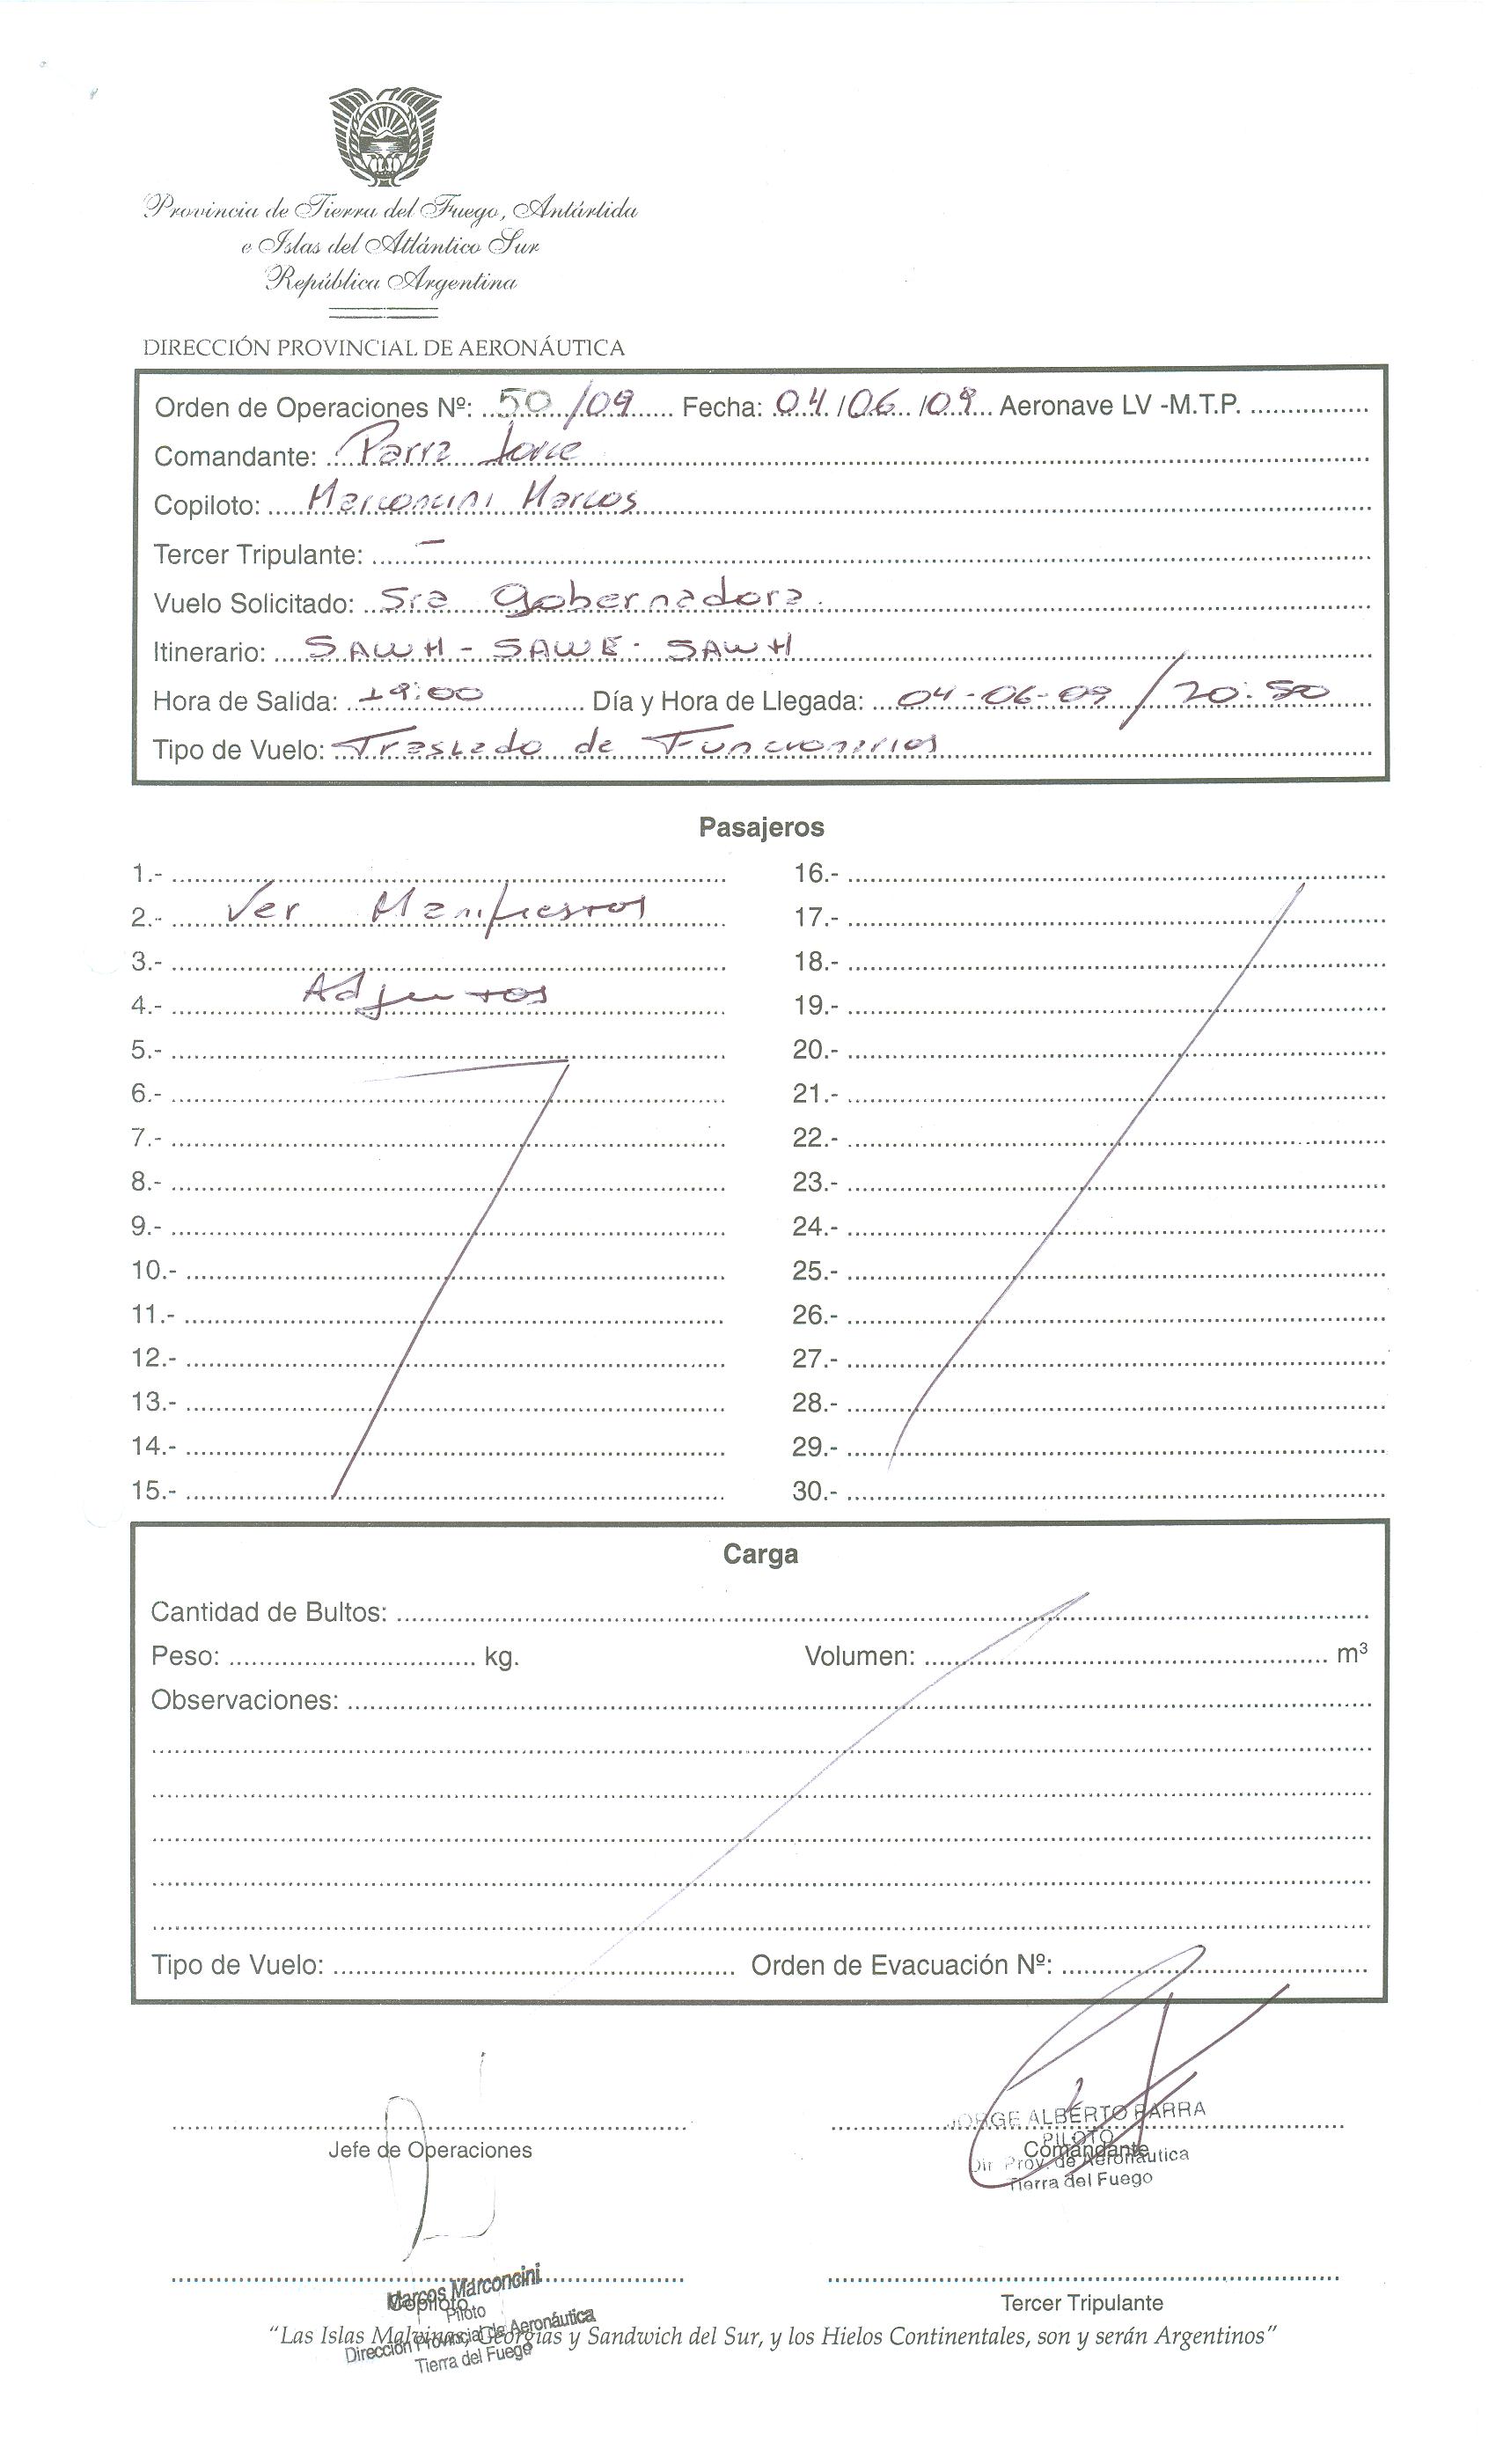 Provincia de Tierra del Fuego, Antártida
e Islas del Atlántico Sur
República Argentina
DIRECCIÓN PROVINCIAL DE AERONÁUTICA
Orden de Operaciones Nº: 50/09 Fecha: 04/06/09 Aeronave LV -M.T.P.
Comandante: Parra Jorge
Copiloto: Marconcini Marcos
Tercer Tripulante: -
Vuelo Solicitado: Sra Gobernadora.
Itinerario: SAWH - SAWE - SAWH
Hora de Salida: 19:00 Día y Hora de Llegada: 04-06-09 / 20:50
Tipo de Vuelo: Traslado de Funcionarios
Pasajeros
1.- 16.-
2.- Ver Manifiestos 17.-
3.- 18.-
4.- Adjuntos 19.-
5.- 20.-
6.- 21.-
7.- 22.-
8.- 23.-
9.- 24.-
10.- 25.-
11.- 26.-
12.- 27.-
13.- 28.-
14.- 29.-
15.- 30.-
Carga
Cantidad de Bultos:
Peso: kg. Volumen: m³
Observaciones:
Tipo de Vuelo: Orden de Evacuación Nº:
JORGE ALBERTO PARRA
PILOTO
Jefe de Operaciones Comandante
Dir. Prov. de Aeronáutica
Tierra del Fuego
Marcos Marconcini
Copiloto Tercer Tripulante
Piloto
Dirección Provincial de Aeronáutica
Tierra del Fuego
"Las Islas Malvinas, Georgias y Sandwich del Sur, y los Hielos Continentales, son y serán Argentinos"